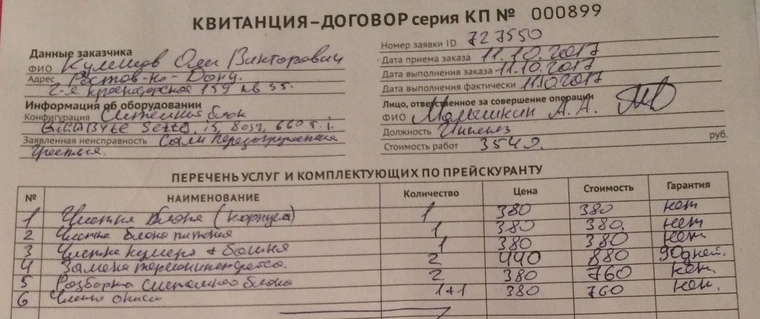 КВИТАНЦИЯ–ДОГОВОР серия КП № 000899
Данные заказчика
ФИО Олег Викторович
Адрес Ростов-на-Дону.
2-я Краснодарская 159 кв 55.
Информация об оборудовании
Конфигурация Системный блок
GIGABYTE
Заявленная неисправность Сам перезагружается
Номер заявки ID 727550
Дата приема заказа 11.10.2017
Дата выполнения заказа 11.10.2017
Дата выполнения фактически 11.10.2017
Лицо, ответственное за совершение операции
ФИО А. А.
Должность Инженер
Стоимость работ 3540. руб.
ПЕРЕЧЕНЬ УСЛУГ И КОМПЛЕКТУЮЩИХ ПО ПРЕЙСКУРАНТУ
№ НАИМЕНОВАНИЕ Количество Цена Стоимость Гарантия
1 Чистка блока (корпуса) 1 380 380 нет
2 Чистка блока питания 1 380 380. нет
3 Чистка кулера + башня 1 380 380 нет
4 Замена термоинтерфейса. 2 440 880 90 дней.
5 Разборка системного блока 2 380 760 нет.
6 1+1 380 760 нет.